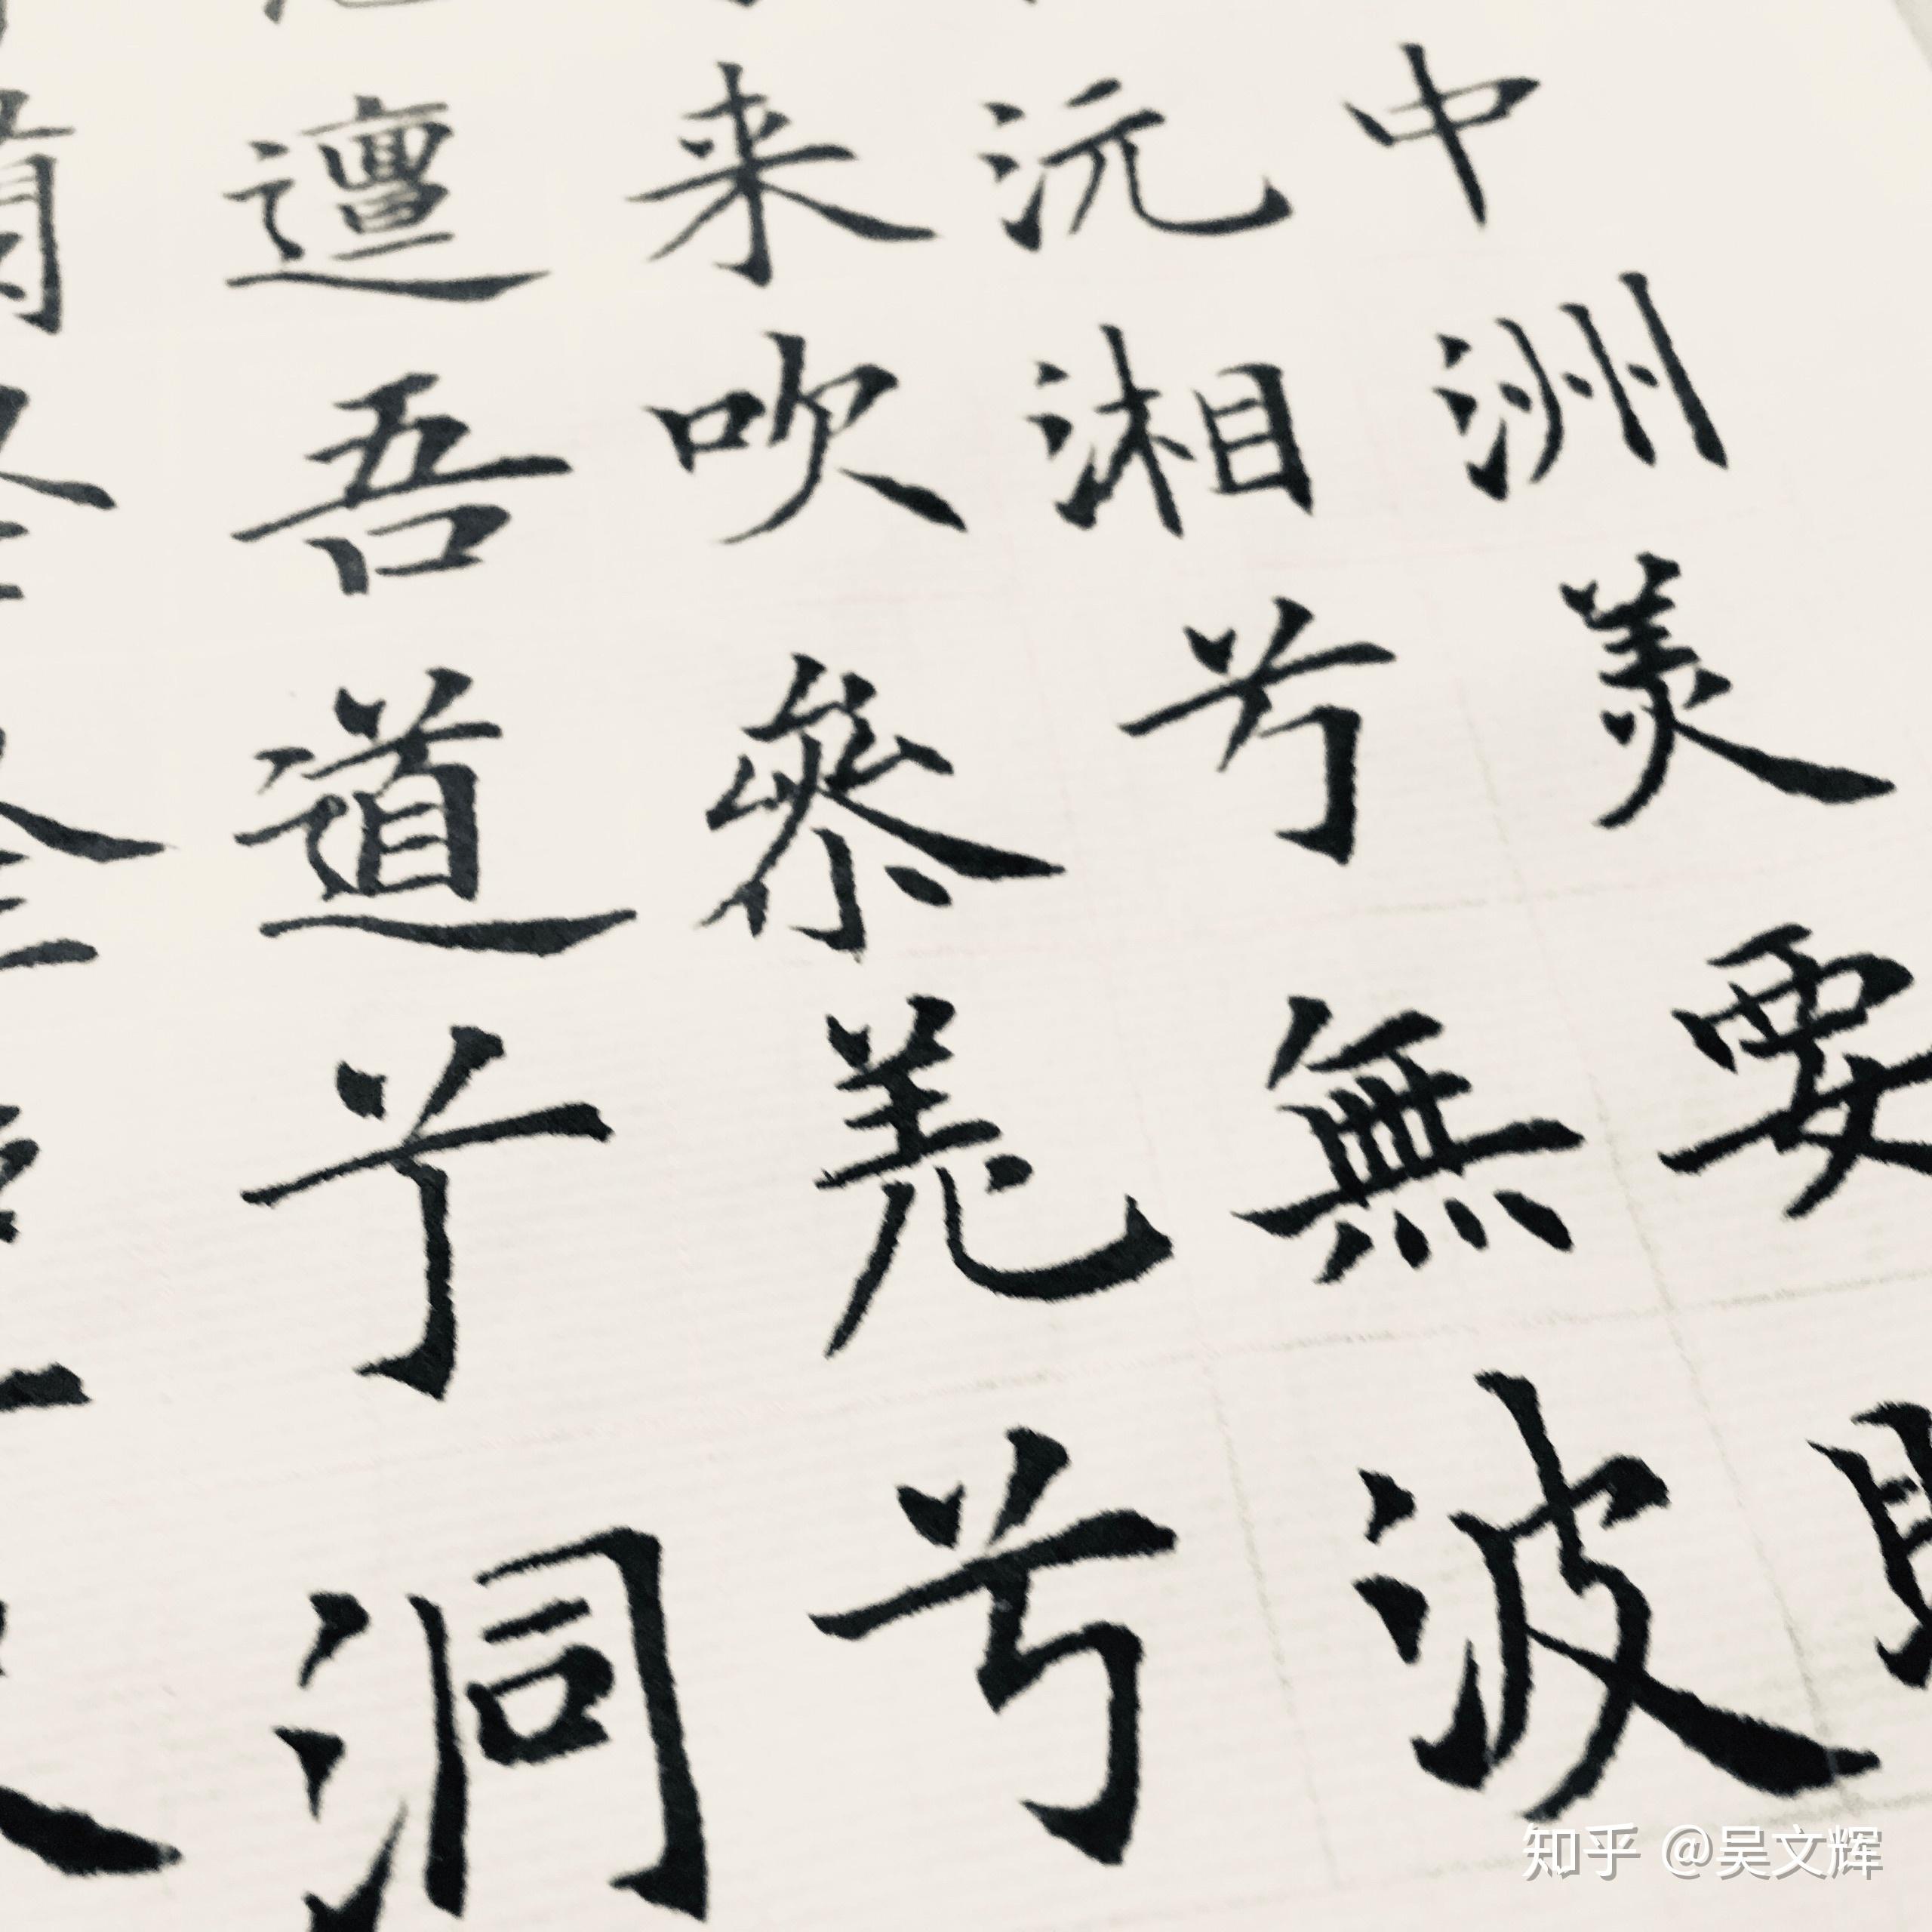 中洲美要眇
沅湘兮無波
来吹參羌兮
邅吾道兮洞
知乎 @吴文辉